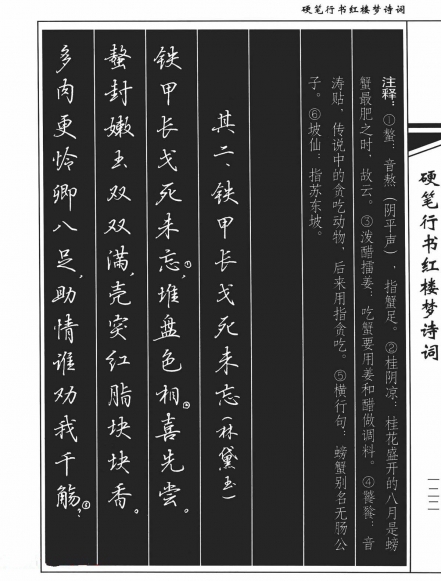 硬笔行书红楼梦诗词
硬笔行书红楼梦诗词
一二二
注释：①螯：音熬（阴平声），指蟹足。②桂阴凉：桂花盛开的八月是螃
蟹最肥之时，故云。③泼醋擂姜：吃蟹要用姜和醋做调料。④饕餮：音
涛贴，传说中的贪吃动物，后来用指贪吃。⑤横行句：螃蟹别名无肠公
子。⑥坡仙：指苏东坡。
其二、铁甲长戈死未忘（林黛玉）
铁甲长戈死未忘①，堆盘色相②喜先尝。
螯封嫩玉双双满，壳突红脂块块香。
多肉更怜卿八足，助情谁劝我千觞？③